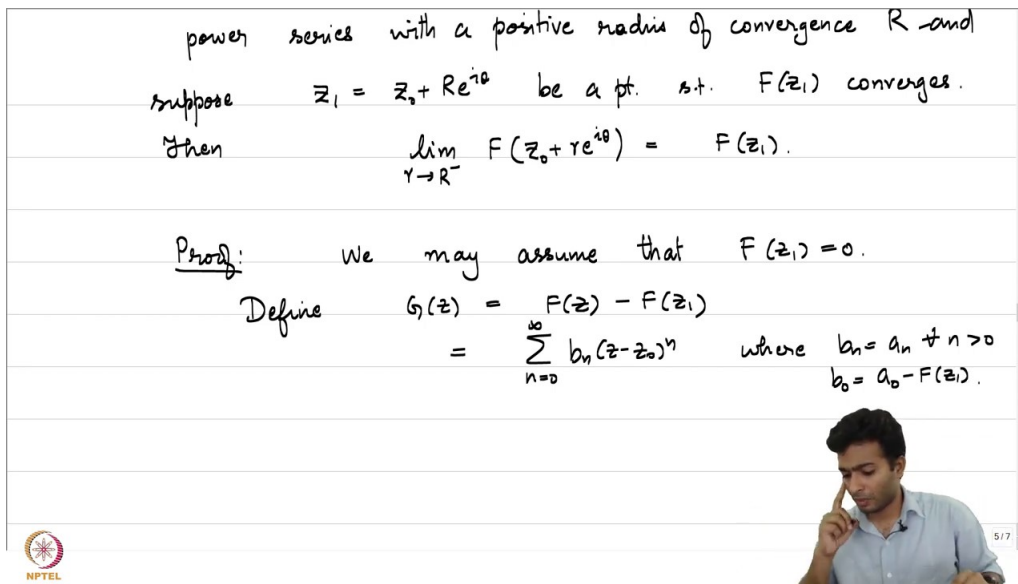 power series with a positive radius of convergence R and
suppose z₁ = z₀ + Re^{iθ} be a pt. s.t. F(z₁) converges.
Then lim_{r→R⁻} F(z₀ + re^{iθ}) = F(z₁).
Proof: We may assume that F(z₁) = 0.
Define G(z) = F(z) − F(z₁)
= ∑_{n=0}^{∞} bₙ(z−z₀)ⁿ where bₙ = aₙ ∀ n > 0
b₀ = a₀ − F(z₁).
5 / 7
NPTEL